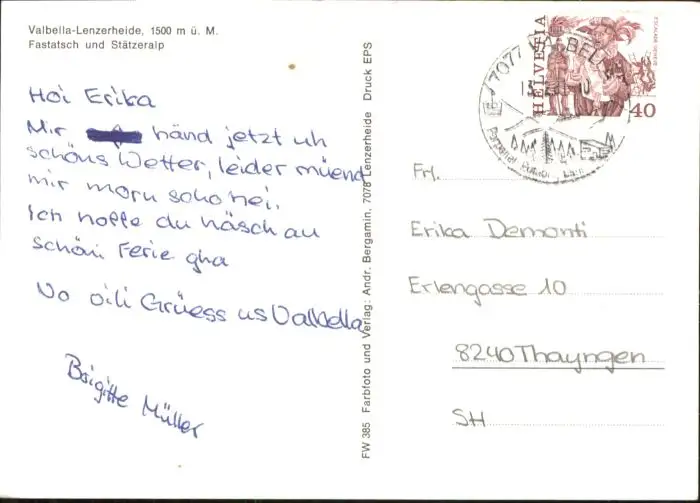 Valbella-Lenzerheide, 1500 m ü. M.
Fastatsch und Stätzeralp
Hoi Erika
Mir händ jetzt uh
schöns Wetter, leider müend
mir morn scho hei.
Ich hoffe du häsch au
schöni Ferie gha
No vili Grüess us Valbella
Brigitte Müller
FW 385 Farbfoto und Verlag: Andr. Bergamin, 7078 Lenzerheide Druck EPS
HELVETIA
ESCALADE GENEVE
40
7077 VALBELLA
Frl.
Erika Demonti
Erlengasse 10
8240 Thayngen
SH